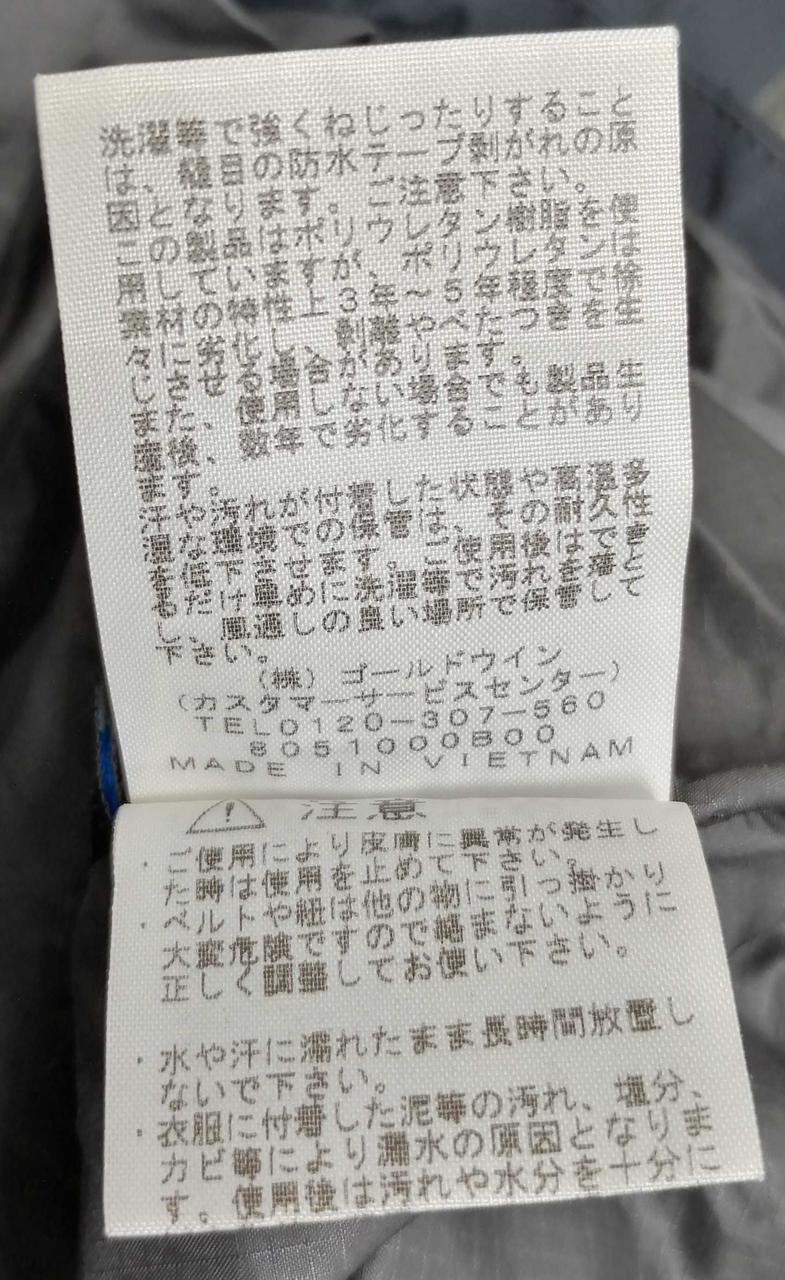 洗濯等で強くねじったりすること
は、縫目の防水テープ剥がれの原
因となります。ご注意下さい。
この製品はポリウレタン樹脂を使
用していますが、ポリウレタンは
素材の特性上、3〜5年程度で徐
々に劣化し、剥離やべたつきを生
じさせる場合があります。
また、使用しない場合でも製品生
産後、数年で劣化することがあり
ます。
汗や汚れが付着した状態や高温多
湿な環境での保管は、その耐久性
を低下させます。ご使用後はで
きるだけ早めに洗濯等で汚れを落と
し、風通しの良い場所で保管して
下さい。
(株) ゴールドウイン
(カスタマーサービスセンター)
TEL0120-307-560
8051000B00
MADE IN VIETNAM
注意
・ご使用により皮膚に異常が発生し
た時は使用を止めて下さい。
・ベルトや紐は他の物に引っ掛かり
大変危険ですので絡まないように
正しく調整してお使い下さい。
・水や汗に濡れたまま長時間放置し
ないで下さい。
・衣服に付着した泥等の汚れ、塩分、
カビ等により漏水の原因となりま
す。使用後は汚れや水分を十分に